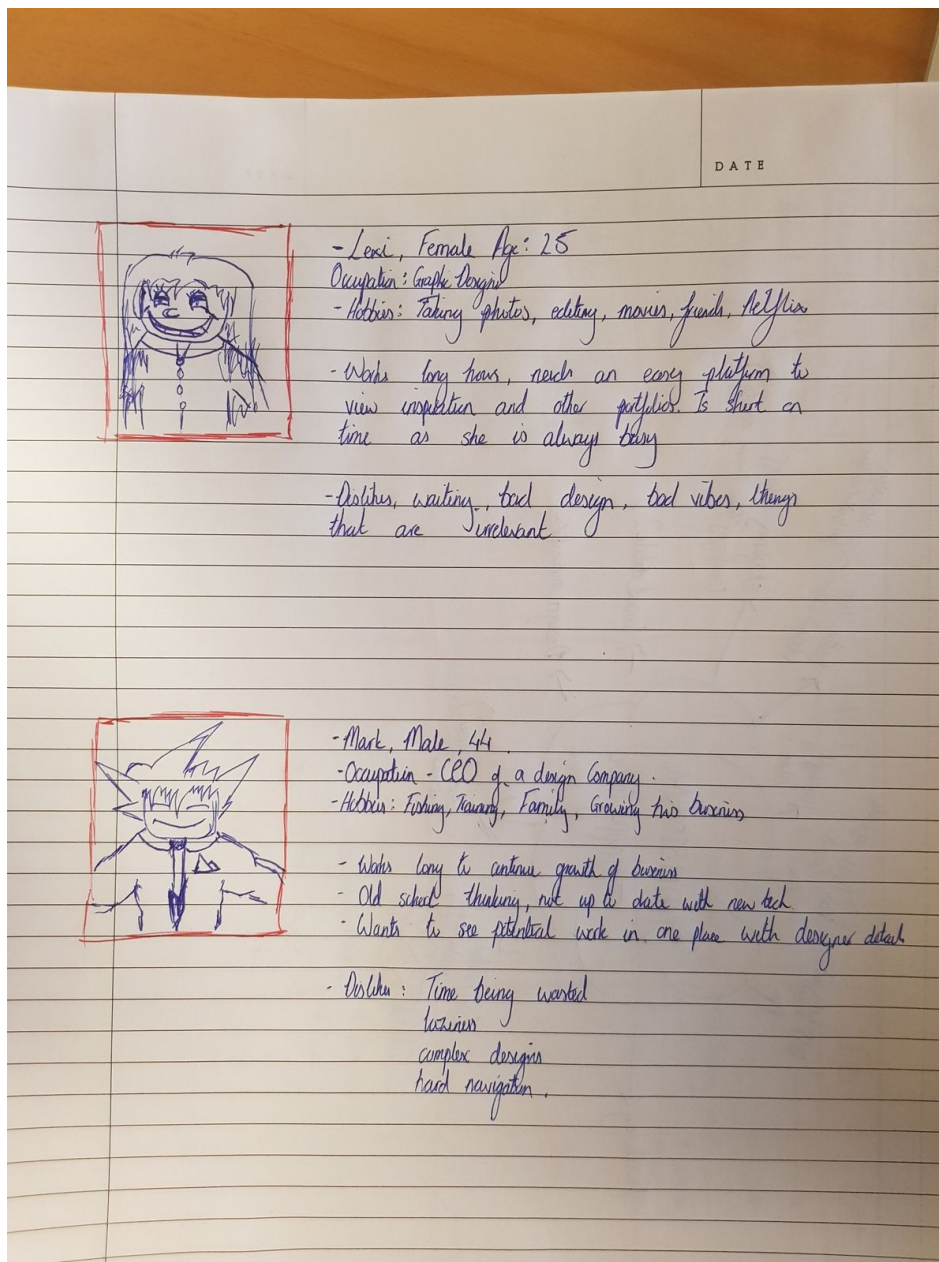 DATE
- Lexi, Female Age: 25
Occupation: Graphic Designer
- Hobbies: Taking photos, editing, movies, friends, Netflix
- Works long hours, needs an easy platform to
view inspiration and other portfolios. Is short on
time as she is always busy
- Dislikes, waiting, bad design, bad vibes, things
that are irrelevant
- Mark, Male, 44.
- Occupation - CEO of a design Company.
- Hobbies: Fishing, Training, Family, Growing his business
- Works long to continue growth of business
- Old school thinking, not up to date with new tech
- Wants to see potential work in one place with designer details
- Dislikes: Time being wasted
laziness
complex designs
hard navigation.